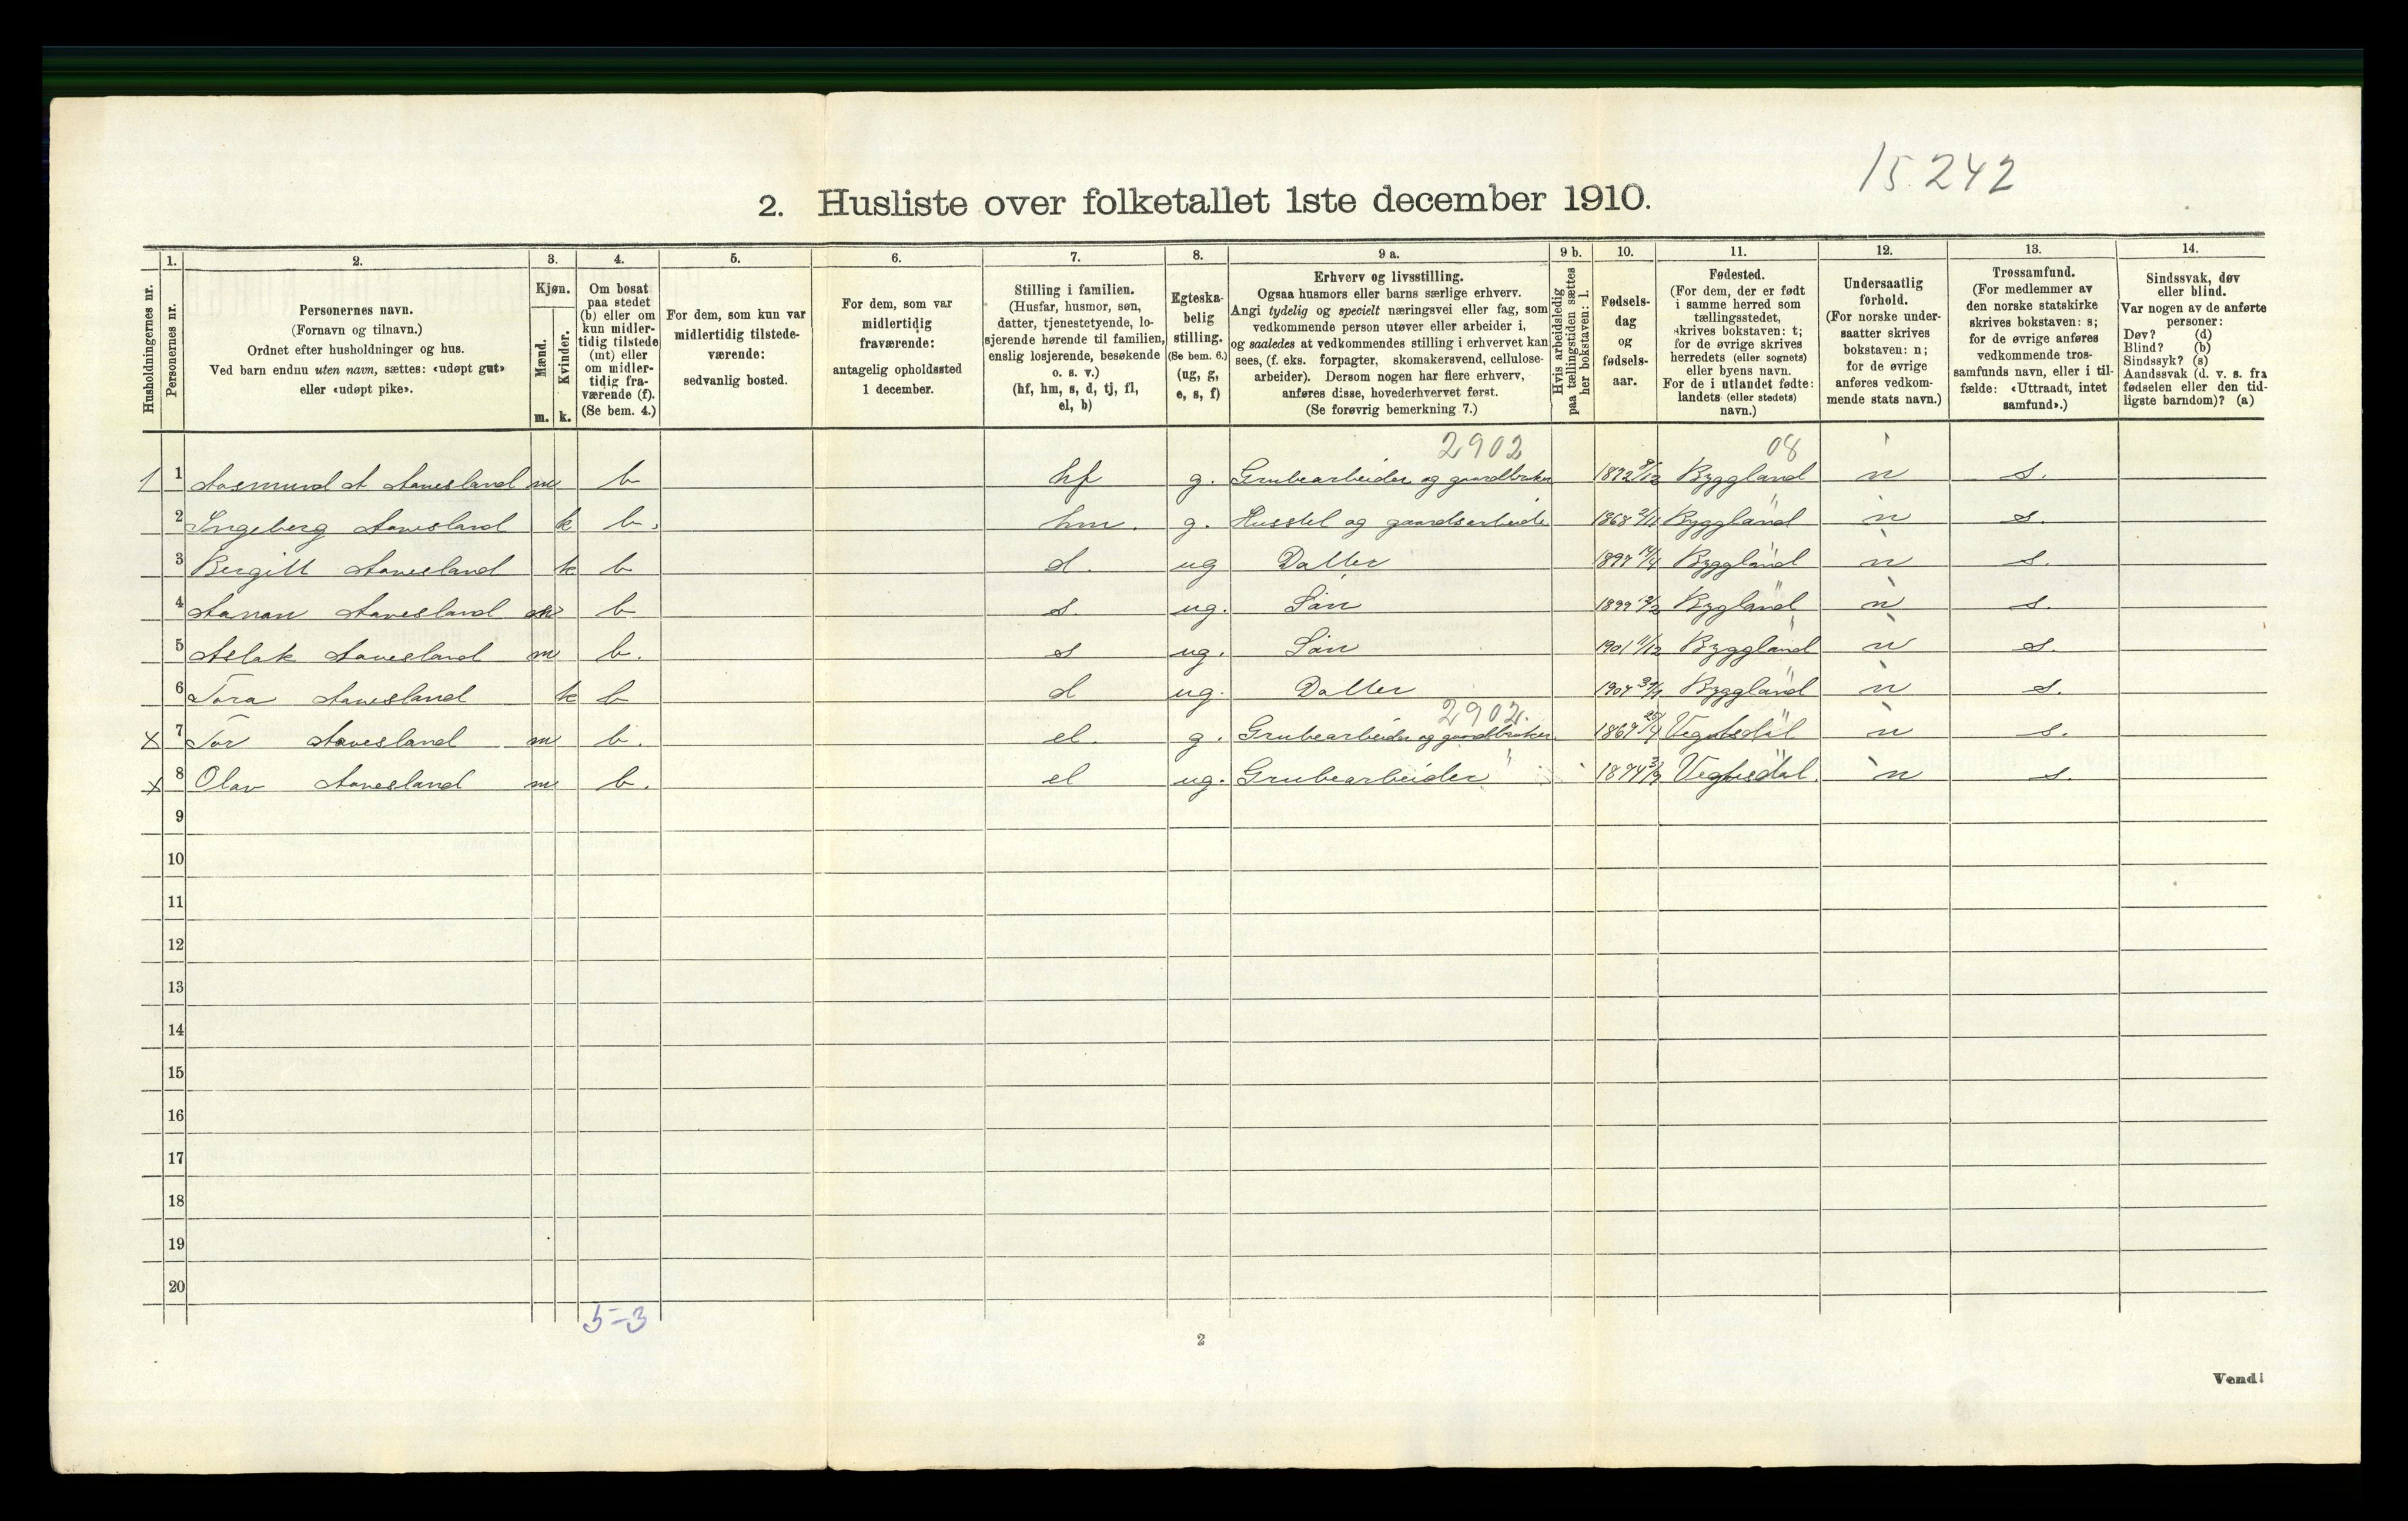 15242
2. Husliste over folketallet 1ste december 1910.
Husholdningernes nr.
1. Personernes nr.
2. Personernes navn.
(Fornavn og tilnavn.)
Ordnet efter husholdninger og hus.
Ved barn endnu uten navn, sættes: «udøpt gut»
eller «udøpt pike».
3. Kjøn.
Mænd. Kvinder.
m. k.
4. Om bosat
paa stedet
(b) eller om
kun midler-
tidig tilstede
(mt) eller
om midler-
tidig fra-
værende (f).
(Se bem. 4.)
5. For dem, som kun var
midlertidig tilstede-
værende:
sedvanlig bosted.
6. For dem, som var
midlertidig
fraværende:
antagelig opholdssted
1 december.
7. Stilling i familien.
(Husfar, husmor, søn,
datter, tjenestetyende, lo-
sjerende hørende til familien,
enslig losjerende, besøkende
o. s. v.)
(hf, hm, s, d, tj, fl,
el, b)
8. Egteska-
belig
stilling.
(Se bem. 6.)
(ug, g,
e, s, f)
9 a. Erhverv og livsstilling.
Ogsaa husmors eller barns særlige erhverv.
Angi tydelig og specielt næringsvei eller fag, som
vedkommende person utøver eller arbeider i,
og saaledes at vedkommendes stilling i erhvervet kan
sees, (f. eks. forpagter, skomakersvend, cellulose-
arbeider). Dersom nogen har flere erhverv,
anføres disse, hovederhvervet først.
(Se forøvrig bemerkning 7.)
9 b. Hvis arbeidsledig
paa tællingstiden sættes
her bokstaven: l.
10. Fødsels-
dag
og
fødsels-
aar.
11. Fødested.
(For dem, der er født
i samme herred som
tællingsstedet,
skrives bokstaven: t;
for de øvrige skrives
herredets (eller sognets)
eller byens navn.
For de i utlandet fødte:
landets (eller stedets)
navn.)
12. Undersaatlig
forhold.
(For norske under-
saatter skrives
bokstaven: n;
for de øvrige
anføres vedkom-
mende stats navn.)
13. Trossamfund.
(For medlemmer av
den norske statskirke
skrives bokstaven: s;
for de øvrige anføres
vedkommende tros-
samfunds navn, eller i til-
fælde: «Uttraadt, intet
samfund».)
14. Sindssvak, døv
eller blind.
Var nogen av de anførte
personer:
Døv? (d)
Blind? (b)
Sindssyk? (s)
Aandssvak (d. v. s. fra
fødselen eller den tid-
ligste barndom)? (a)
2902 08
1 1 Aasmund A Aanesland m b hf g. Grubearbeider og gaardbruker 1872 Byggland n s.
2 Ingeberg Aanesland k b. hm. g. Husstel og gaardsarbeide 1868 Byggland n s.
3 Bergitt Aanesland k b d. ug Datter 1897 14/4 Byggland n s.
4 Aanon Aanesland m b s. ug. Søn 1899 Bygland n s.
5 Aslak Aanesland m b. s ug. Søn 1901 11/12 Byggland n s.
6 Tora Aanesland k b d ug. Datter 1907 Byggland n s.
2902.
x 7 Tor Aanesland m b. el. g. Grubearbeider og gaardbruker. 1867 Vegusdal n s.
x 8 Olav Aanesland m b. el ug. Grubearbeider 1874 3/9 Vegusdal. n s.
9
10
11
12
13
14
15
16
17
18
19
20
5-3
2
Vend!